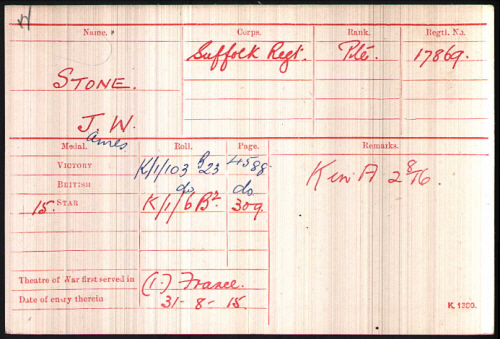 Name. Corps. Rank. Regtl. No.
Suffolk Regt. Pte. 17869.
STONE.
J. W.
ames
Medal. Roll. Page. Remarks.
VICTORY K/1/103 B23 4588.
BRITISH do do.
15 STAR K/1/6B² 309.
Theatre of War first served in (1.) France.
Date of entry therein 31-8-15.
K. 1380.